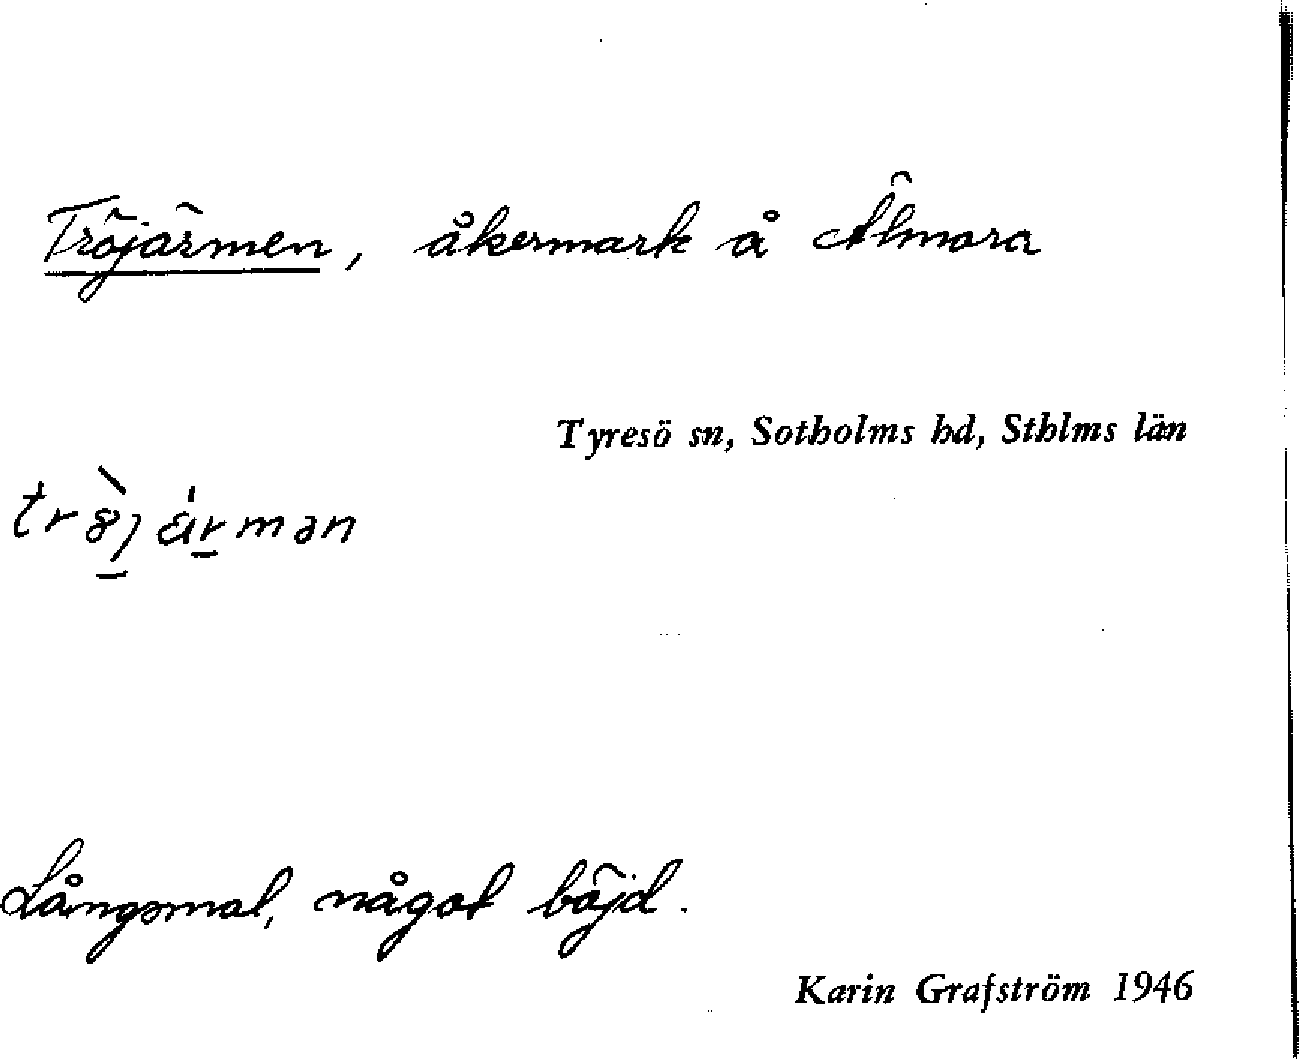 Tröjärmen, åkermark å Älmora
Tyresö sn, Sotholms hd, Sthlms län
Långsmal, något böjd.
Karin Grafström 1946